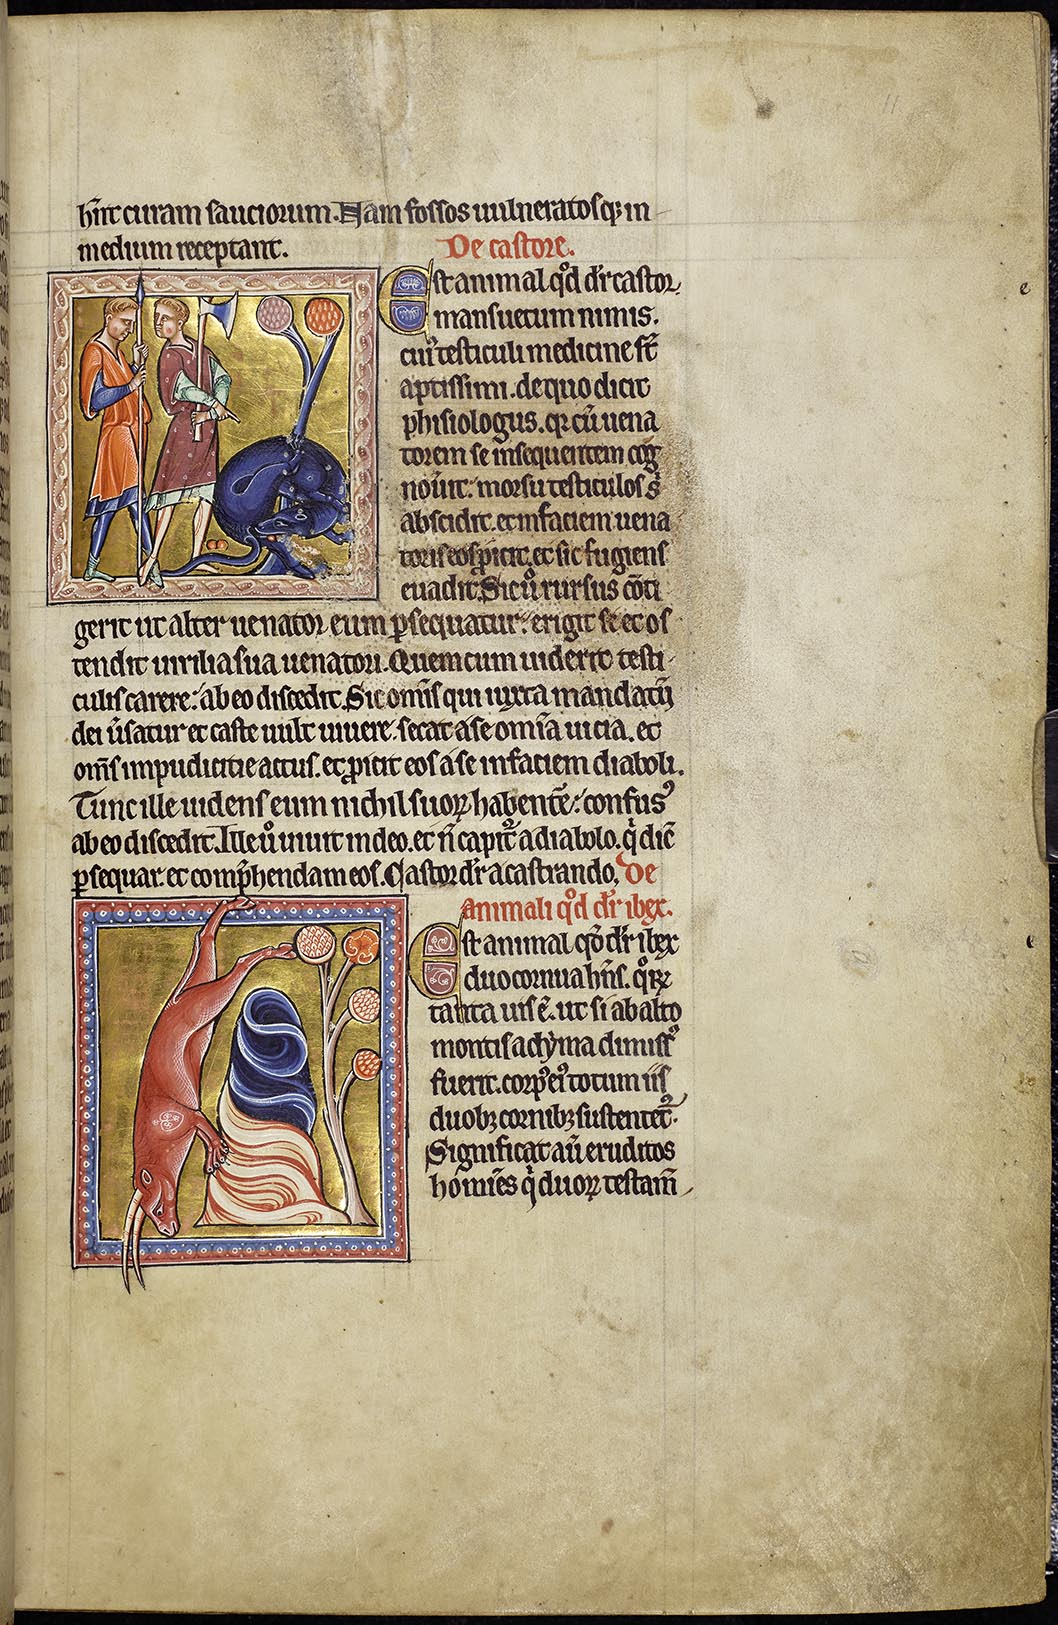 11
hn̄t curam sauciorum. Nam fossos uulneratosq; in
medium receptant. De castore.
Est animal qd̕ dr̄ castor.
mansuetum nimis.
cui' testiculi medicine st̄
aptissimi. de quo dicit
phisiologus. qr cū uena
torem se insequentem cog
nouit: morsu testiculos s'
abscidit. et in faciem uena
toris eos ꝓicit. et sic fugiens
euadit. Si u̾o rursus cōti
gerit ut alter uenator eum ꝑsequatur: erigit se et os
tendit uirilia sua uenatori. Quem cum uiderit testi
culis carere: ab eo discedit. Sic omīs qui iuxta mandatū
dei u̾satur et caste uult uiuere. secat a se om̄ia uicia. et
om̄s impudicitie actus. et ꝓicit eos a se in faciem diaboli.
Tunc ille uidens eum nichil suoꝝ habentē: confus'
ab eo discedit. Ille u̾o uiuit in deo. et n̄ capit̾ a diabolo. q̇ dic̄
ꝑsequar. et comp̄hendam eos. Castor dr̄ a castrando. De
animali qd̕ dr̄ ibex.
Est animal qd̕ dr̄ ibex
duo cornua hn̄s. quoꝝ
tanta uis ē. ut si ab alto
montis ad yma dimiss'
fuerit. corp' ei' totum iis
duobꝫ cornibꝫ sustentet̾.
Significat aū eruditos
homies q̇ duoꝝ testam̄
e
e